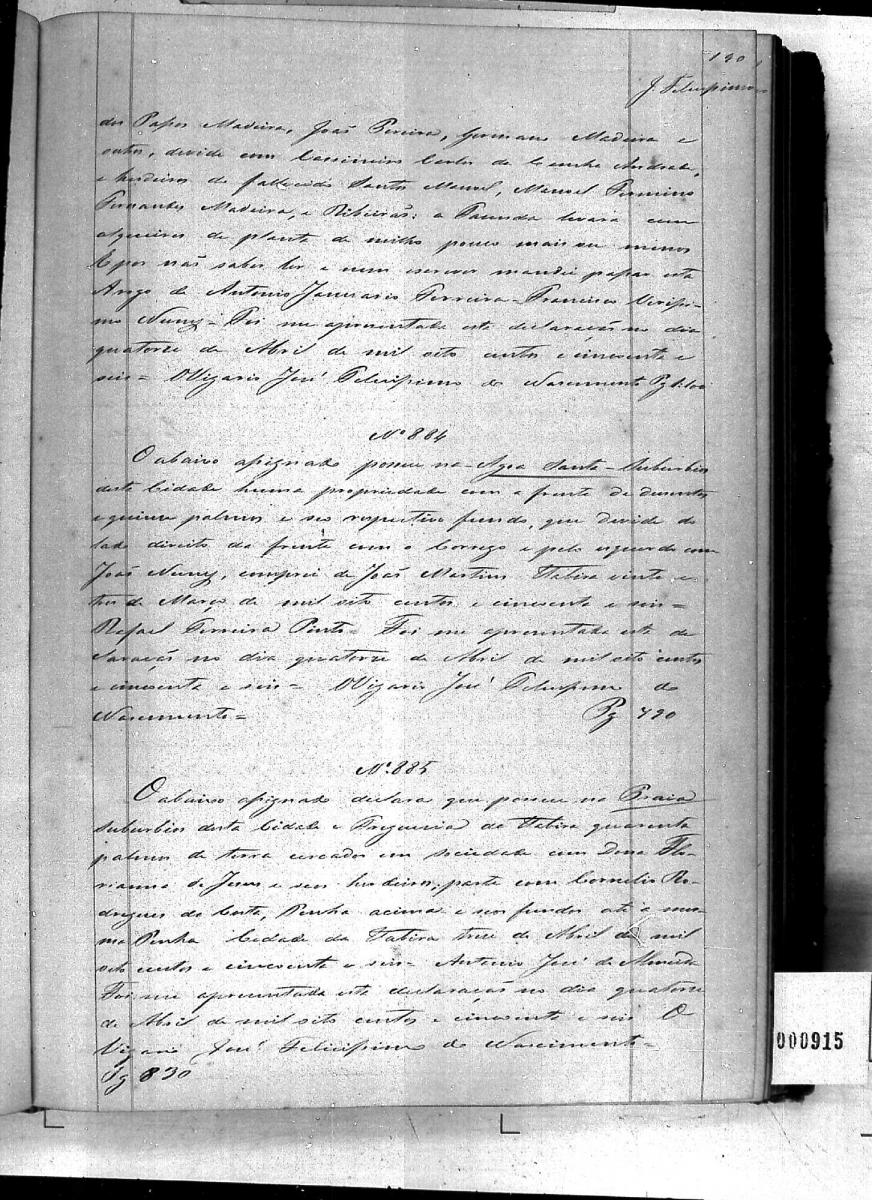 190
J. Felicissimo
dos Papos Madeira, João Pereira, Germano Madeira e
outros, divide com Cassimiro Carlos da Cunha Andrade,
e herdeiros do fallecido Santos Manoel, Manoel Firmino
Fernandes Madeira, e Ribeirão: a Fasenda levará cem
alqueires de planta de milho pouco mais ou menos
E por não saber ler e nem escrever mandei passar esta
Arogo de Antonio Januario Ferreira - Francisco Verissi-
mo Nunes - Foi me apresentada esta declaração no dia
quatorze de Abril de mil oito centos e cincoenta e
seis = O Vigario José Felicissimo do Nascimento Pg
Nº 884
O abaixo assignado possue na - Agoa Santa - Suburbios
desta Cidade huma propriedade com a frente de dusentos
e quinze palmos e seo respectivo fundo, que divide do
lado direito da frente com o Corrego e pelo esquerdo com
João Nunes, comprei de João Martins Itabira vinte e
tres de Março de mil oito centos e cincoenta e seis =
Rafael Ferreira Pinto = Foi me apresentada esta de
claração no dia quatorze de Abril de mil oito centos
e cincoenta e seis = O Vigario José Felicissimo do
Nascimento = Pg 790
Nº 885
O abaixo assignado declara que possue na Praia
suburbios desta Cidade e Freguesia da Itabira quarenta
palmos de terra cercados em sociedade com Dona Flo-
rianna de Jesus e seos herdeiros, parte com Cornelio Ro-
drigues da Costa, Penha acima e seos fundos até a mes-
ma Penha Cidade da Itabira trese de Abril de mil
oito centos e cincoenta e seis - Antonio José de Almeida
Foi me apresentada esta declaração no dia quatorze
de Abril de mil oito centos e cincoenta e seis O
Vigario José Felicissimo do Nascimento =
Pg 830
000915